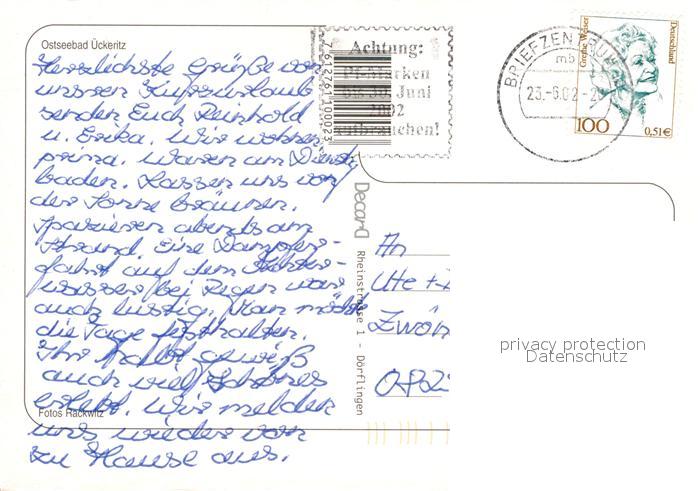 Ostseebad Ückeritz
Herzlichste Grüße von
unserem Kurzurlaub
senden Euch Reinhold
u. Erika. Wir wohnen
prima. Waren am Dienst.
baden. Lassen uns von
der Sonne bräunen.
Spazieren abends am
Strand. Eine Dampfer-
fahrt auf dem
wasser bei Regen war
auch lustig. Man möcht
die Tage festhalten.
Ihr habt gewiß
auch viel Schönes
erlebt. Wir melden
uns wieder von
zu Hause aus.
Fotos Rackwitz
7612761100023
Achtung:
Pf-Marken
bis 30. Juni
2002
aufbrauchen!
BRIEFZENTRUM
mb
23.-6.02-2
Grethe Weiser
Deutschland
100
0,51€
Decard
Rheinstrasse 1 - Dörflingen
An
Ute +
Zwön
0802
privacy protection
Datenschutz